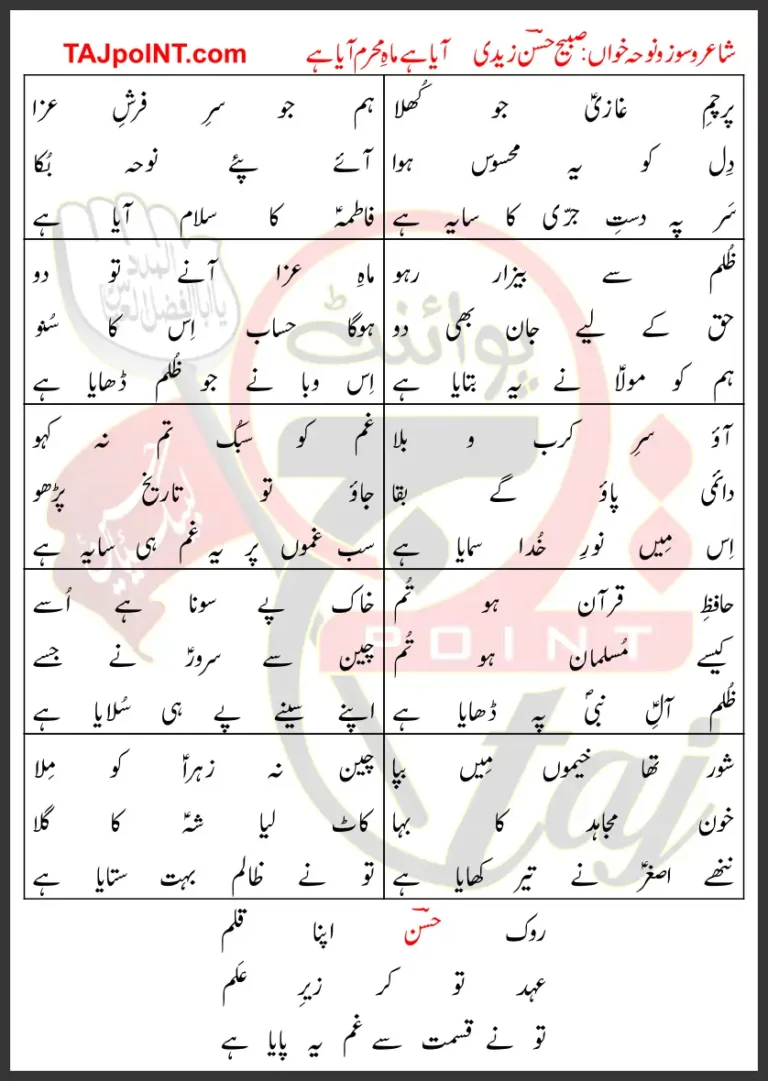 شاعر و سوز و نوحہ خواں: صبیح حسنؔ زیدی آیا ہے ماہِ محرم آیا ہے TAJpoiNT.com
پرچمِ غازیؑ جو کُھلا
دِل کو یہ محسوس ہوا
سَر پہ دستِ جرّی کا سایہ ہے
ہم جو سرِ فرشِ عزا
آئے پئے نوحہ بُکا
فاطمہؑ کا سلام آیا ہے
ظُلم سے بیزار رہو
حق کے لیے جان بھی دو
ہم کو مولاؑ نے یہ بتایا ہے
ماہِ عزا آنے تو دو
ہوگا حساب اِس کا سُنو
اِس وبا نے جو ظُلم ڈھایا ہے
آؤ سرِ کرب و بلا
دائمی پاؤ گے بقا
اِس مِیں نورِ خُدا سمایا ہے
غم کو سبُک تم نہ کہو
جاؤ تو تاریخ پڑھو
سب غموں پر یہ غم ہی سایہ ہے
حافظِ قرآن ہو تُم
کیسے مُسلمان ہو تُم
ظُلم آلِؑ نبیؐ پہ ڈھایا ہے
خاک پے سونا ہے اُسے
چین سے سرورؑ نے جسے
اپنے سینے پے ہی سُلایا ہے
شور تھا خیموں مِیں بپا
خون مجاہد کا بہا
ننھے اصغرؑ نے تیر کھایا ہے
چین نہ زہراؑ کو مِلا
کاٹ لیا شہؑ کا گلا
تو نے ظالم بہت ستایا ہے
روک حسنؔ اپنا قلم
عہد تو کر زیرِ علَم
تو نے قسمت سے غم یہ پایا ہے
المدد
یا ابا الفضل العباسؑ
پوائنٹ
تاج
لبیک یا حسینؑ
POINT
taj